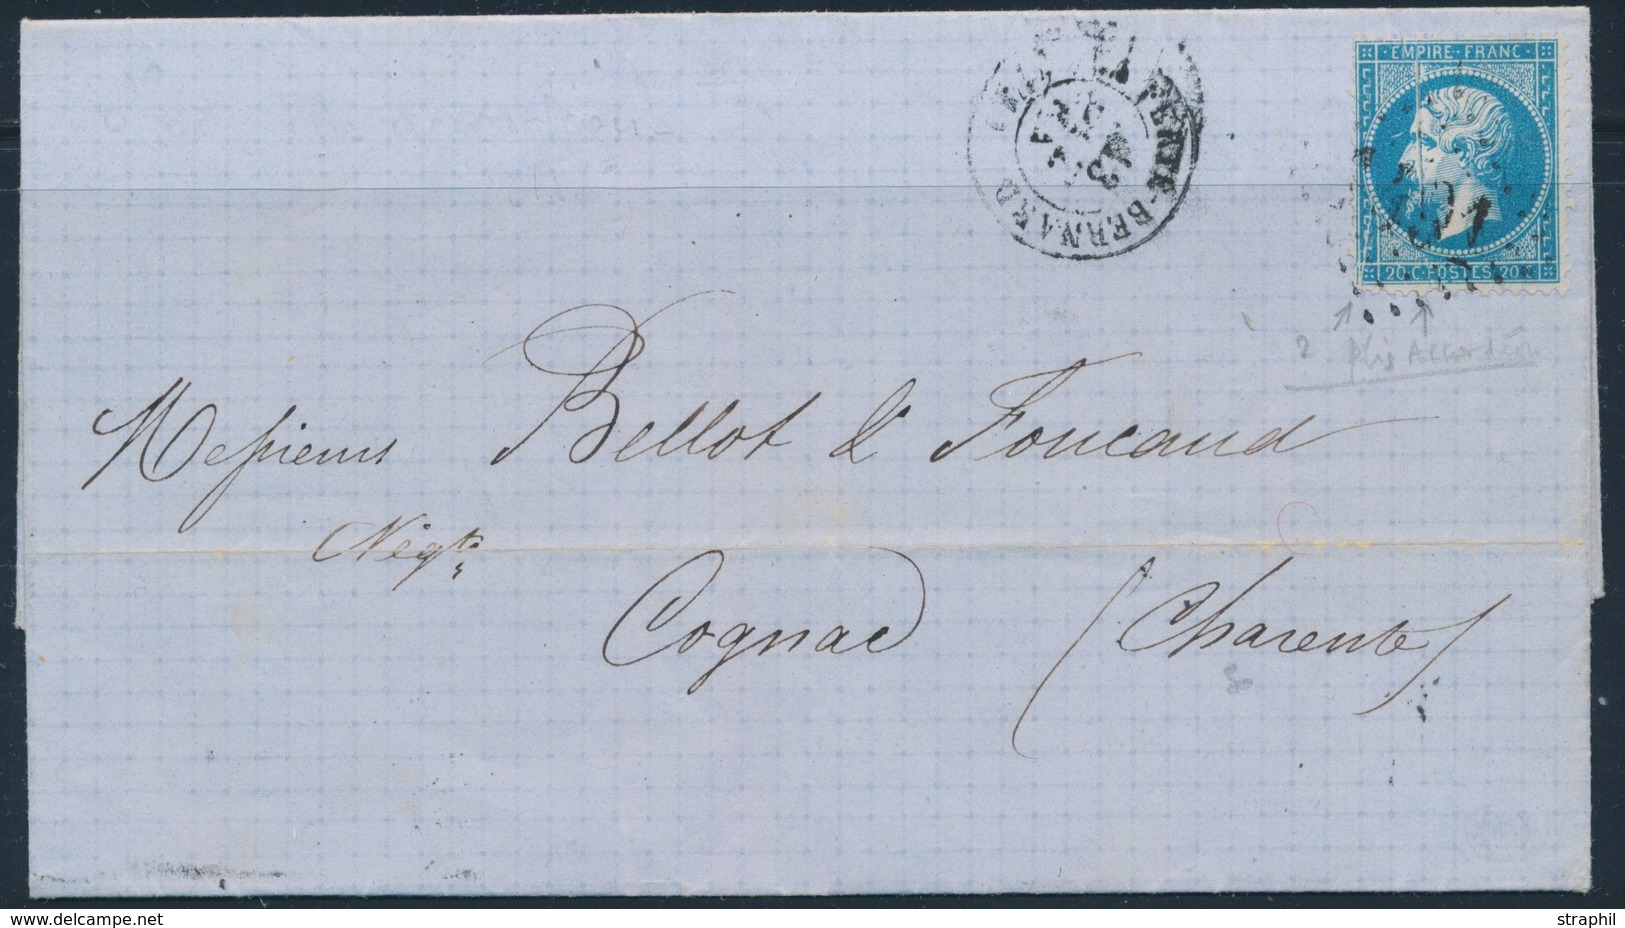 EMPIRE FRANC
LA FERTÉ-BERNARD
20 C POSTES 20
2 plis Accordéon
Messieurs Bellot & Foucaud
Negts
Cognac (Charente)
www.delcampe.net
straphil